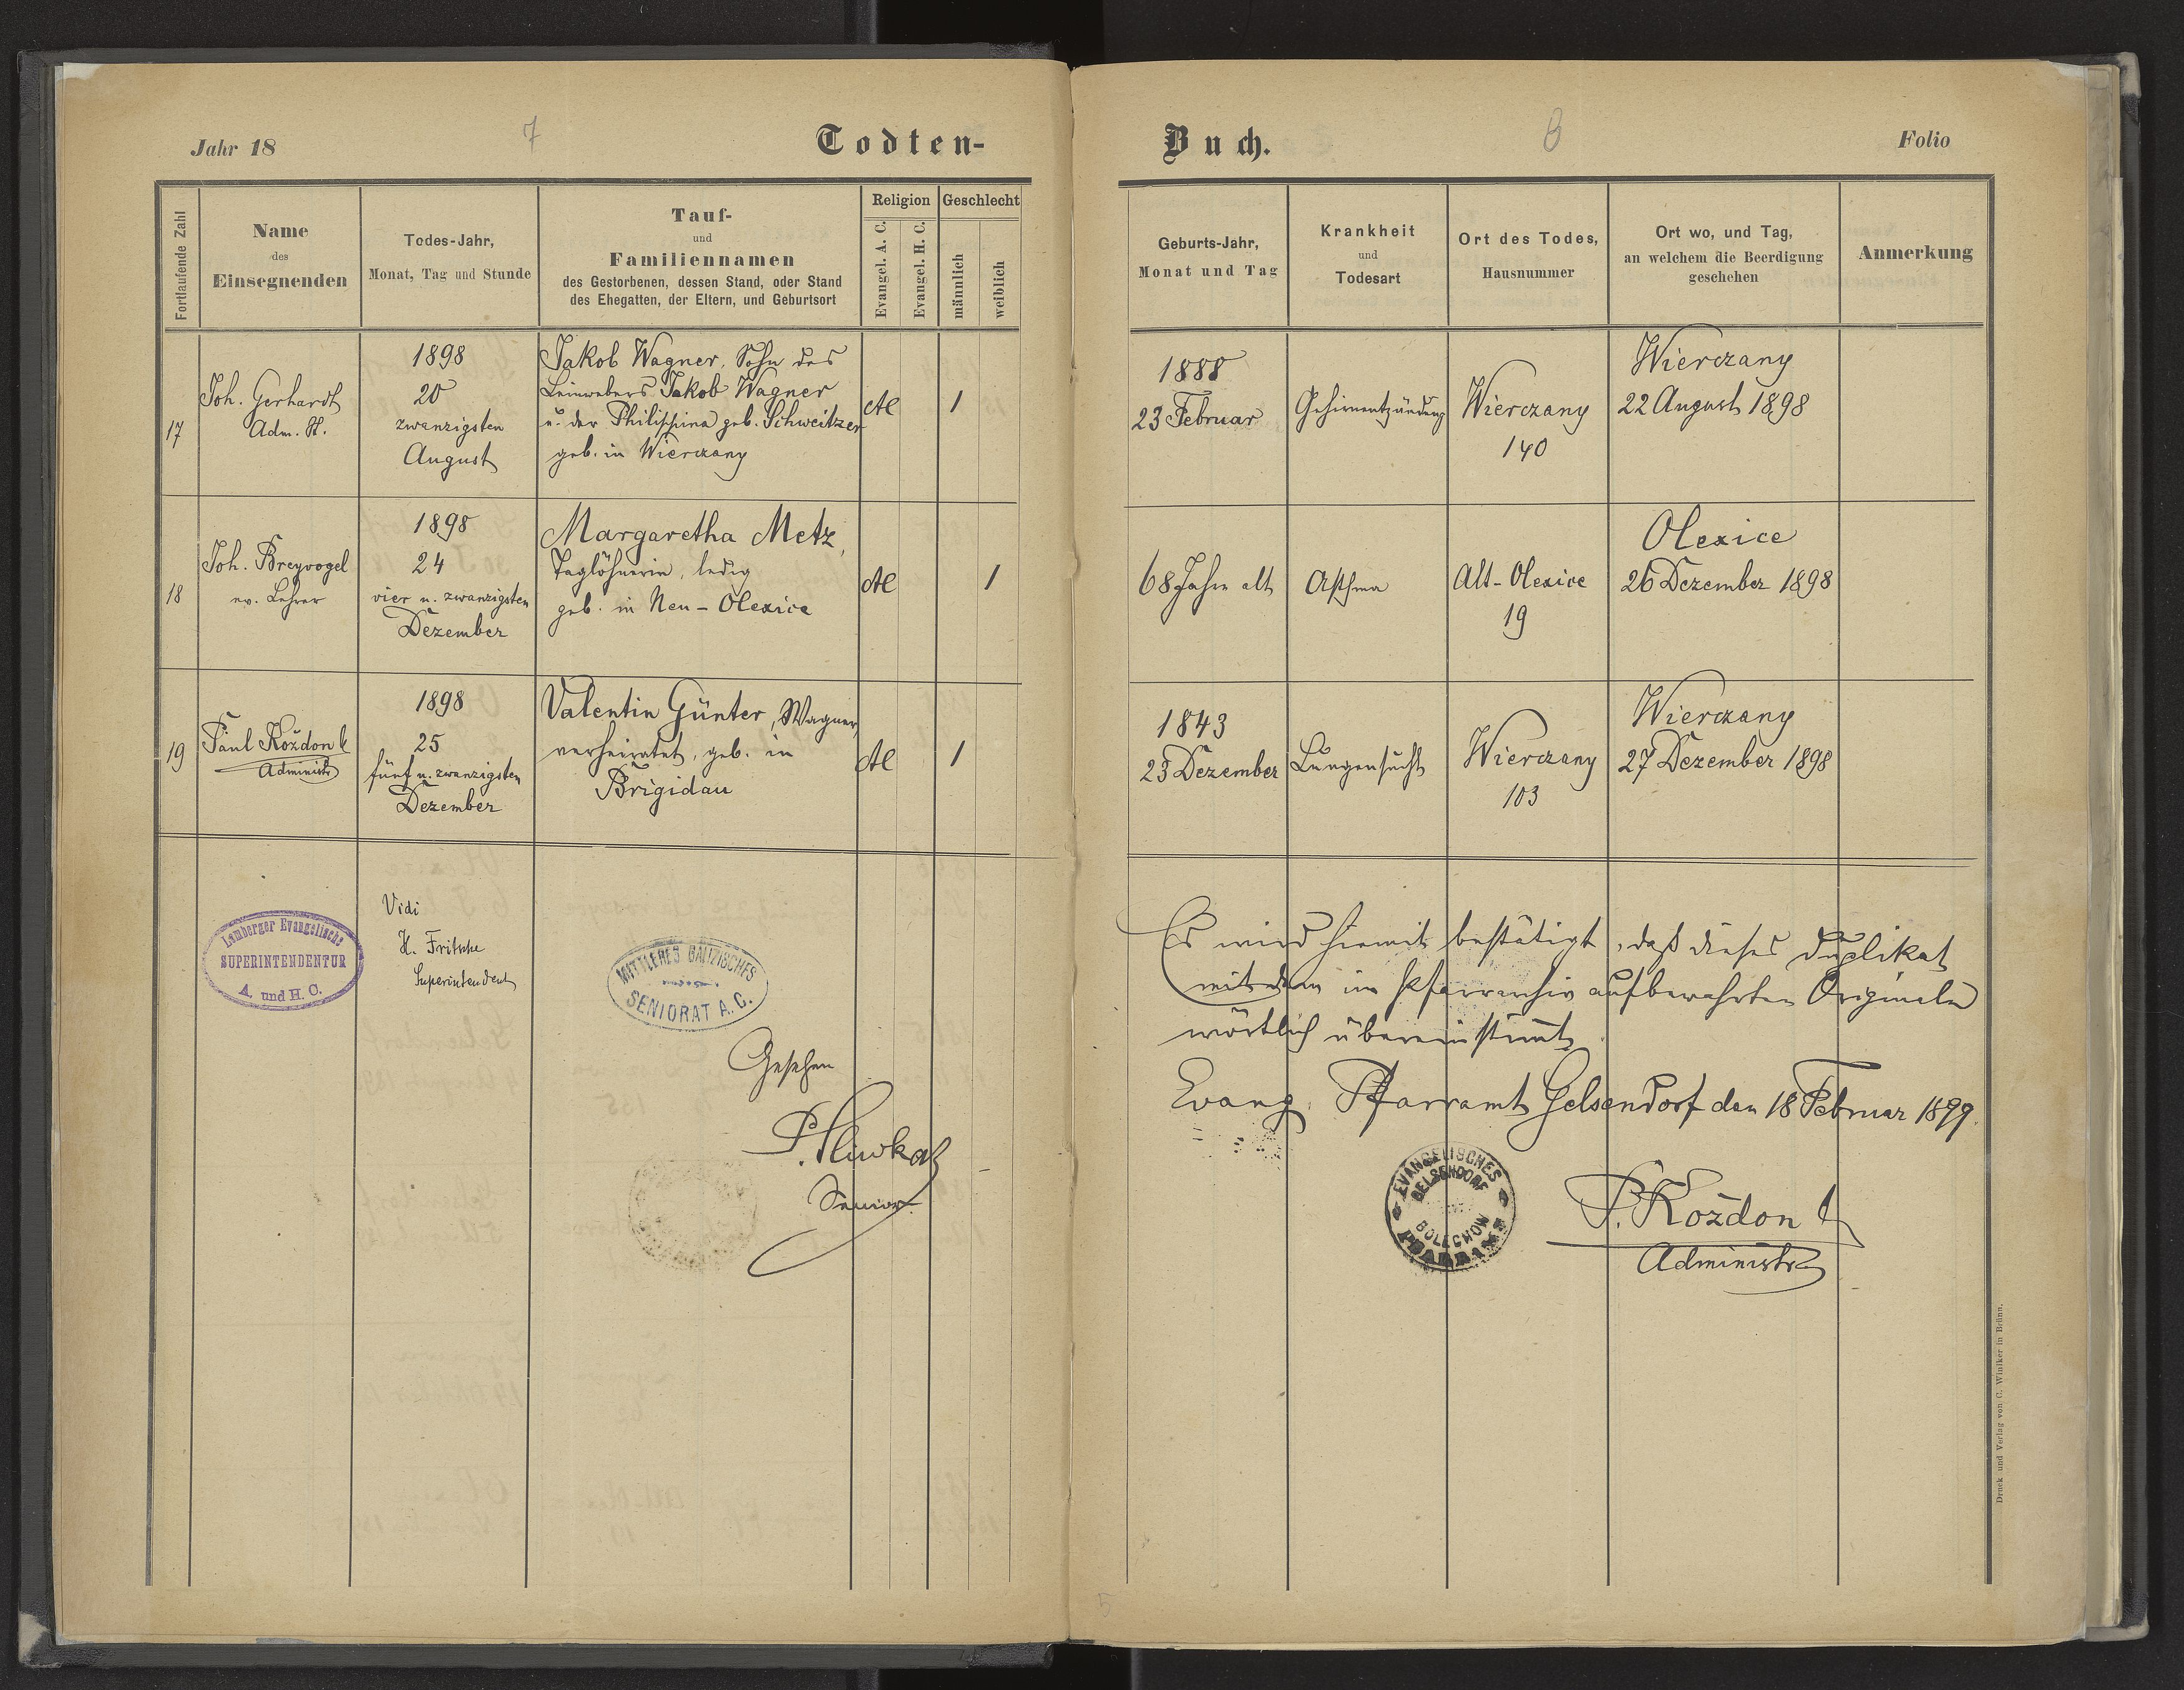 Jahr 18
7
Todten-
Fortlaufende Zahl
Name
des
Einsegnenden
Todes-Jahr,
Monat, Tag und Stunde
Tauf-
und
Familiennamen
des Gestorbenen, dessen Stand, oder Stand
des Ehegatten, der Eltern, und Geburtsort
Religion
Evangel. A. C.
Evangel. H. C.
Geschlecht
männlich
weiblich
17
Joh. Gerhardt
Adm. St.
1898
20
zwanzigsten
August
Jakob Wagner, Sohn des
Leinwebers Jakob Wagner
u. der Philippina geb. Schweitzer
geb. in Wierczany
1
18
Joh. Breyvogel
ev. Lehrer
1898
24
vier u. zwanzigsten
Dezember
Margaretha Metz,
Taglöhnerin, ledig
geb. in Neu-Olexice
1
19
Paul Kożdon
Administr
1898
25
fünf u. zwanzigsten
Dezember
Valentin Günter, Wagner,
verheiratet, geb. in
Brigidau
1
Lemberger Evangelische
SUPERINTENDENTUR
A. und H. C.
Vidi
H. Fritsche
Superintendent
MITTLERES GALIZISCHES
SENIORAT A. C.
Gesehen
Senior
Buch.
8
Folio
Geburts-Jahr,
Monat und Tag
Krankheit
und
Todesart
Ort des Todes,
Hausnummer
Ort wo, und Tag,
an welchem die Beerdigung
geschehen
Anmerkung
1888
23 Februar
Gehirnentzündung
Wierczany
140
Wierczany
22 August 1898
68 Jahre alt
Asthma
Alt-Olexice
19
Olexice
26 Dezember 1898
1843
23 Dezember
Lungensucht
Wierczany
103
Wierczany
27 Dezember 1898
Es wird hiemit bestätigt, daß dieses Duplikat
mit dem im Pfarrarchiv aufbewahrten Originale
wörtlich übereinstimt
Evang. Pfarramt Gelsendorf den 18 Februar 1899.
EVANGELISCHES
GELSENDORF
BOLECHOW
PFARRAMT
P. Kożdon
Administr
Druck und Verlag von C. Winiker in Brünn.
5